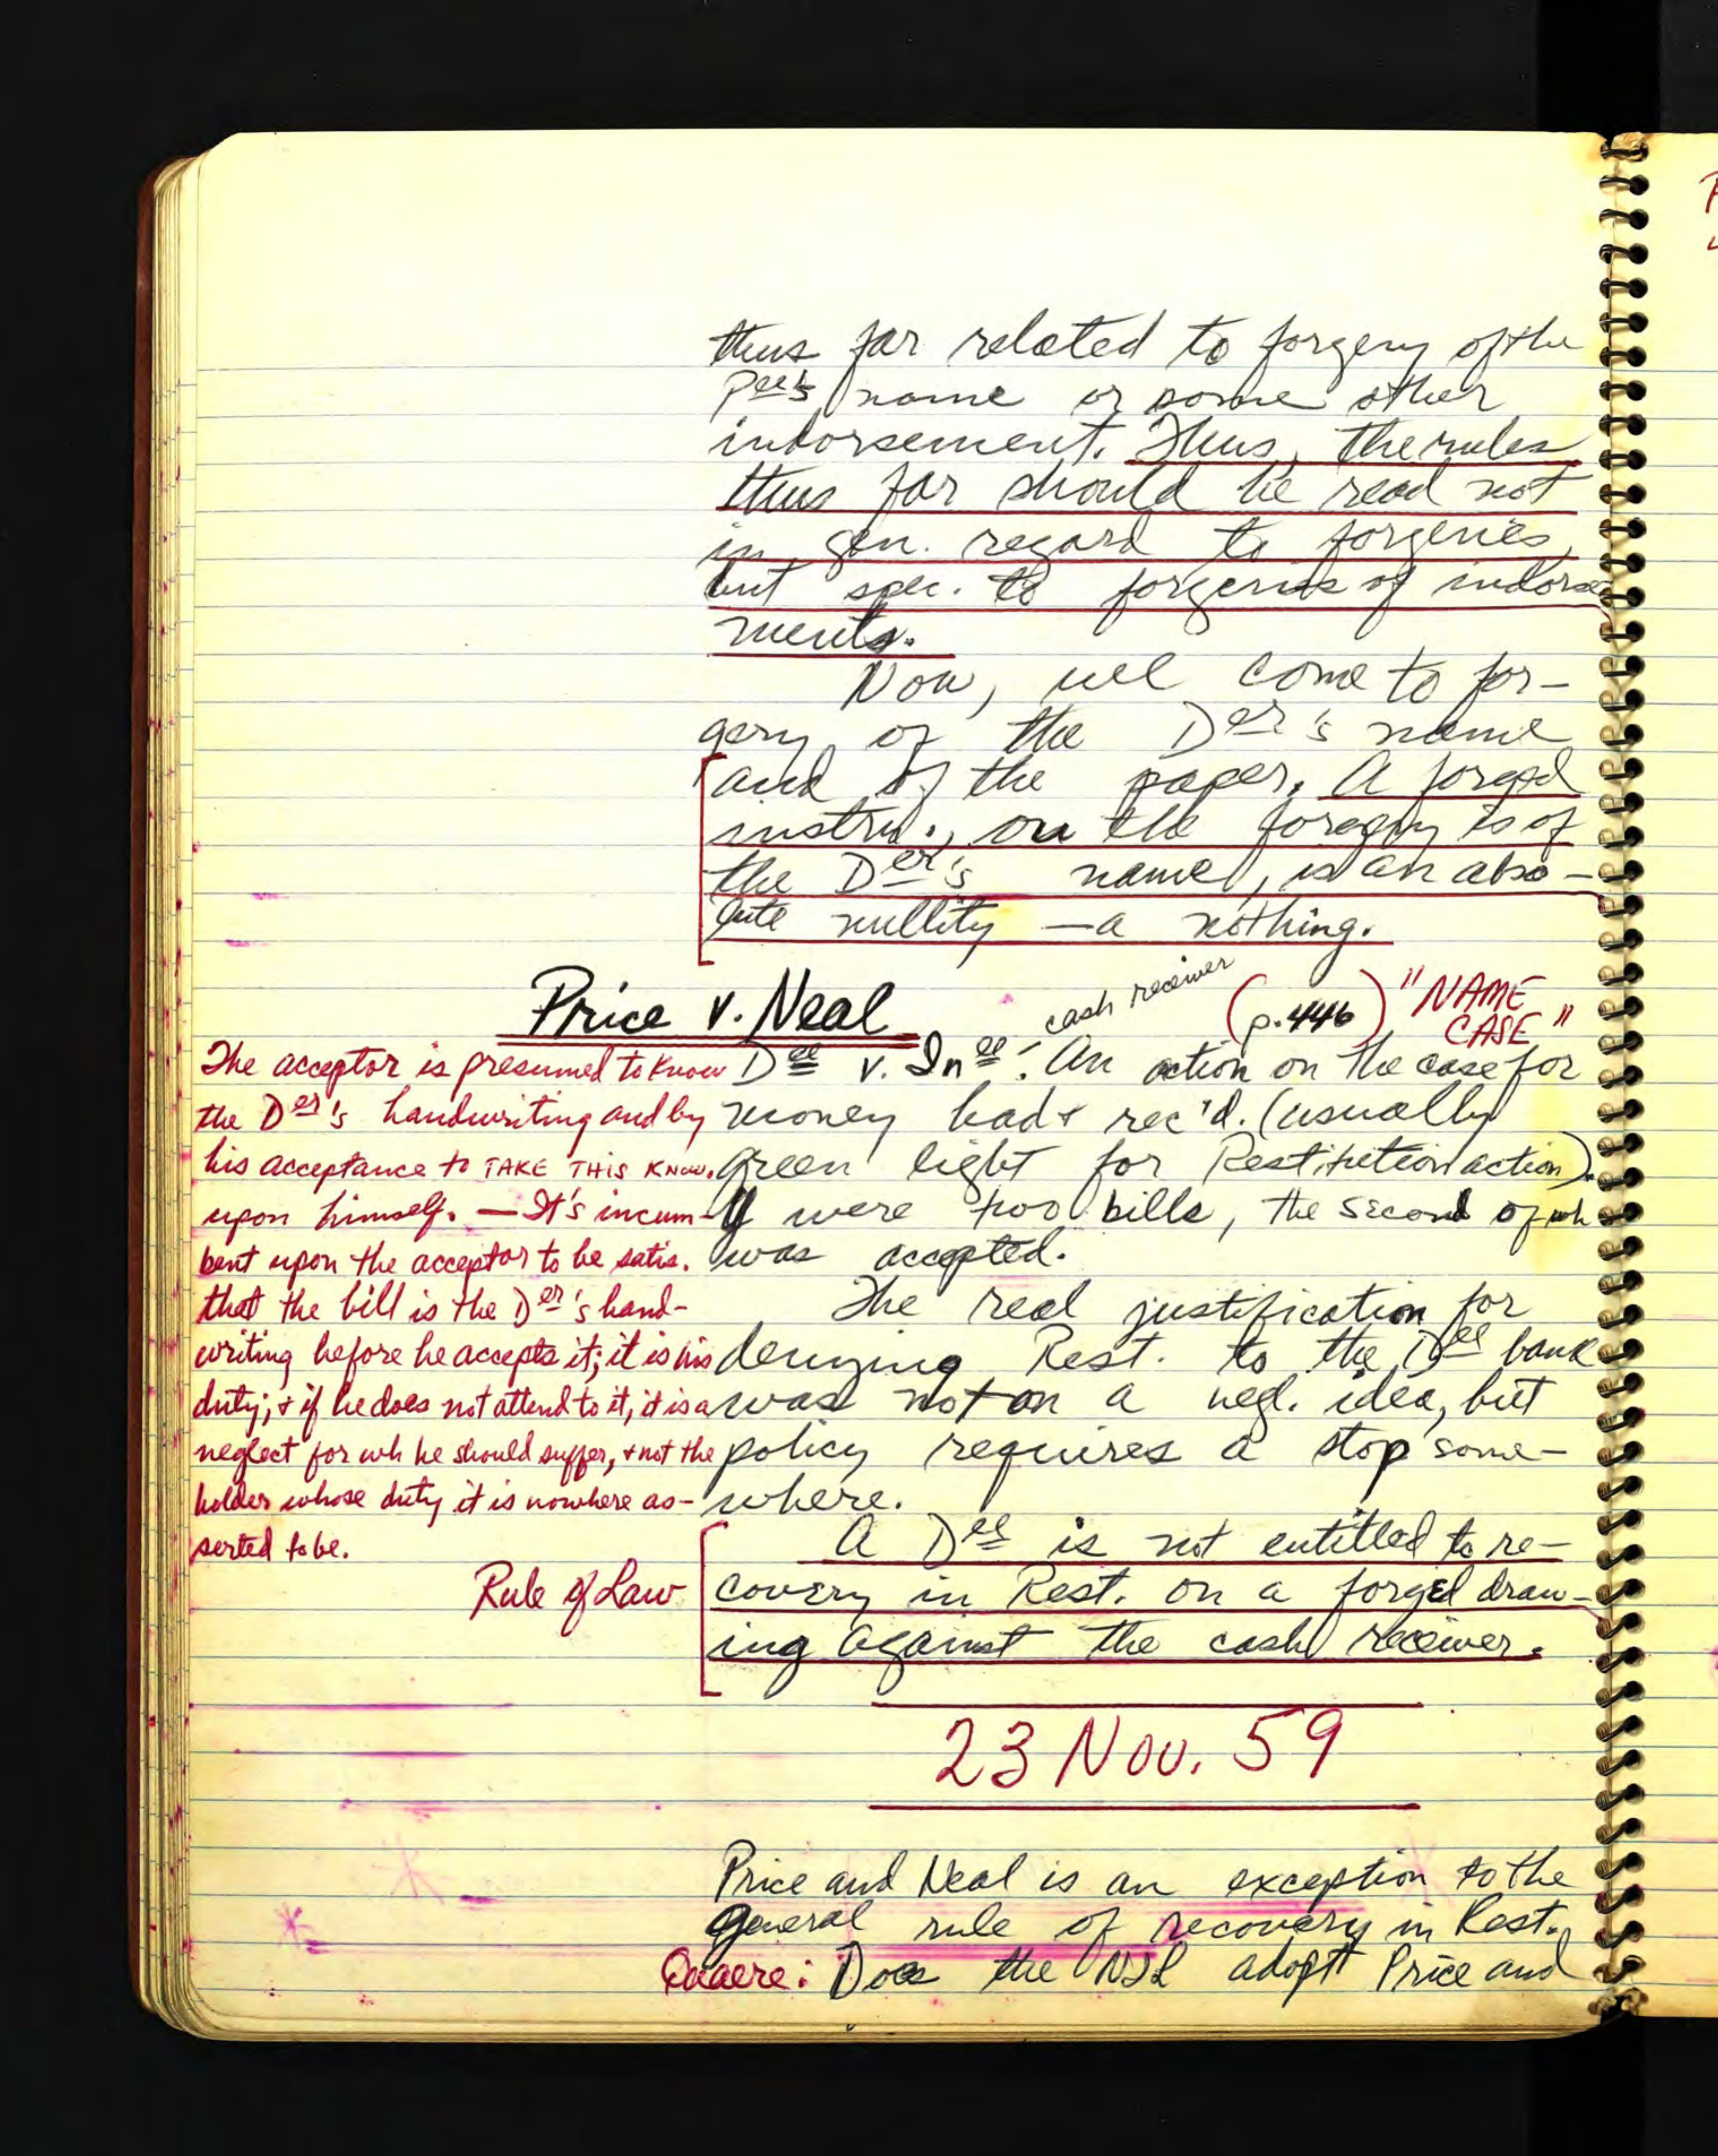 thus far related to forgery of the
Pee's name or some other
indorsement. Thus, the rules
thus far should be read not
in gen. regard to forgeries,
but spec. to forgeries of indorse
ments.
Now, we come to for-
gery of the Der's name
and of the paper. A forged
instru., on the forgery is of
the Der's name, is an abso-
lute nullity — a nothing.
Price v. Neal
cash receiver
(p. 446) "NAME
CASE"
Dee v. Inee: An action on the case for
money had & rec'd. (usually
green light for Restitution action).
were two bills, the second of wh
was accepted.
The real justification for
denying Rest. to the Dee bank
was not on a negl. idea, but
policy requires a stop some-
where.
The acceptor is presumed to know
the Der's handwriting and by
his acceptance to TAKE THIS KNOW.
upon himself. — It's incum-
bent upon the acceptor to be satis.
that the bill is the Der's hand-
writing before he accepts it; it is his
duty; & if he does not attend to it, it is a
neglect for wh he should suffer, & not the
holder whose duty it is nowhere as-
serted to be.
Rule of Law
A Dee is not entitled to re-
covery in Rest. on a forged draw-
ing against the cash receiver.
23 Nov. 59
Price and Neal is an exception to the
general rule of recovery in Rest.
Quaere: Does the NIL adopt Price and